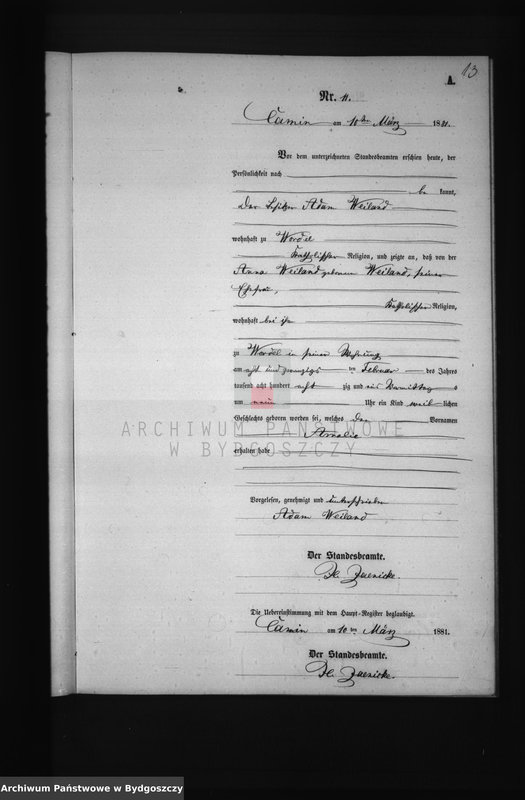 13
A.
Nr. 11.
Camin am 10ten März 1881.
Vor dem unterzeichneten Standesbeamten erschien heute, der
Persönlichkeit nach
be kannt,
Der Besitzer Adam Weiland
wohnhaft zu
katholischer Religion, und zeigte an, daß von der
Anna Weiland geborenen Weiland, seiner
Ehefrau,
katholischer Religion,
wohnhaft bei ihm
zu in seiner Wohnung
am acht und zwanzigsten Februar des Jahres
tausend acht hundert acht zig und eins Vormittags
um neun Uhr ein Kind weib lichen
Geschlechts geboren worden sei, welches den Vornamen
Amalie
erhalten habe
Vorgelesen, genehmigt und unterschrieben
Adam Weiland
Der Standesbeamte.
Die Uebereinstimmung mit dem Haupt-Register beglaubigt.
Camin am 10ten März 1881.
Der Standesbeamte.
ARCHIWUM PAŃSTWOWE
W BYDGOSZCZY
Archiwum Państwowe w Bydgoszczy